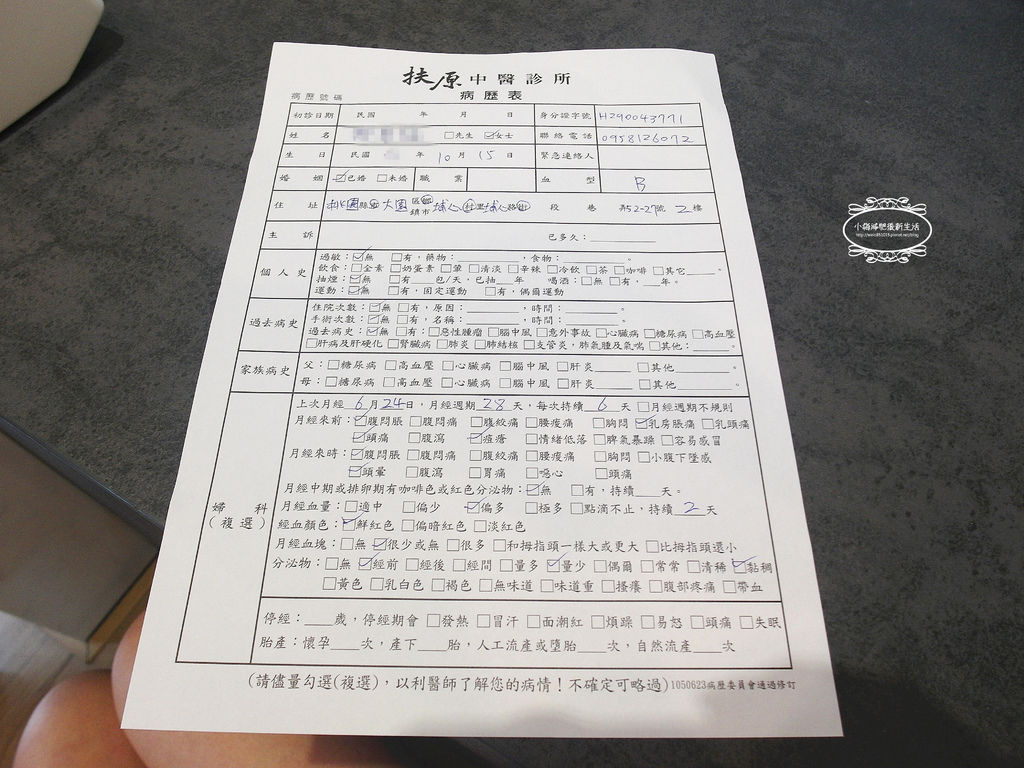 扶原中醫診所
病歷號碼 病歷表
初診日期 民國 年 月 日 身分證字號 H290043771
姓名 □先生 ☑女士 聯絡電話 0958126072
生日 民國 年 10月 15日 緊急連絡人
婚姻 ☑已婚 □未婚 職業 血型 B
住址 桃園縣市 大園區鄉鎮市 埔心村里 埔心路街 段 巷 弄52-27號 2樓
主訴 已多久：
個人史 過敏：☑無 □有，藥物：________，食物：________。
飲食：□全素 □奶蛋素 □葷 □清淡 □辛辣 □冷飲 □茶 □咖啡 □其它____。
抽煙：☑無 □有___包/天，已抽___年 喝酒：□無 □有，___年。
運動：☑無 □有，固定運動 □有，偶爾運動
過去病史 住院次數：☑無 □有，原因：________，時間：________。
手術次數：☑無 □有，名稱：________，時間：________。
過去病史：☑無 □有：□惡性腫瘤 □腦中風 □意外事故 □心臟病 □糖尿病 □高血壓
□肝病及肝硬化 □腎臟病 □肺炎 □肺結核 □支管炎，肺氣腫及氣喘 □其他：____。
家族病史 父：□糖尿病 □高血壓 □心臟病 □腦中風 □肝炎____ □其他________。
母：□糖尿病 □高血壓 □心臟病 □腦中風 □肝炎____ □其他________。
婦科（複選） 上次月經 6月24日，月經週期 28 天，每次持續 6 天 □月經週期不規則
月經來前：☑腹悶脹 □腹悶痛 □腹絞痛 □腰痠痛 □胸悶 ☑乳房脹痛 □乳頭痛
☑頭痛 □腹瀉 ☑痘瘡 □情緒低落 □脾氣暴躁 □容易感冒
月經來時：☑腹悶脹 □腹悶痛 □腹絞痛 □腰痠痛 □胸悶 □小腹下墜感
☑頭暈 □腹瀉 □胃痛 □噁心 □頭痛
月經中期或排卵期有咖啡色或紅色分泌物：☑無 □有，持續___天。
月經血量：□適中 □偏少 ☑偏多 □極多 □點滴不止，持續 2 天
經血顏色：☑鮮紅色 □偏暗紅色 □淡紅色
月經血塊：□無 ☑很少或無 □很多 □和拇指頭一樣大或更大 □比拇指頭還小
分泌物：□無 ☑經前 □經後 □經間 □量多 ☑量少 □偶爾 □常常 □清稀 ☑黏稠
□黃色 □乳白色 □褐色 □無味道 □味道重 □搔癢 □腹部疼痛 □帶血
停經：___歲，停經期會 □發熱 □冒汗 □面潮紅 □煩躁 □易怒 □頭痛 □失眠
胎產：懷孕___次，產下___胎，人工流產或墮胎___次，自然流產___次
(請儘量勾選(複選)，以利醫師了解您的病情！不確定可略過) 1050623病歷委員會通過修訂